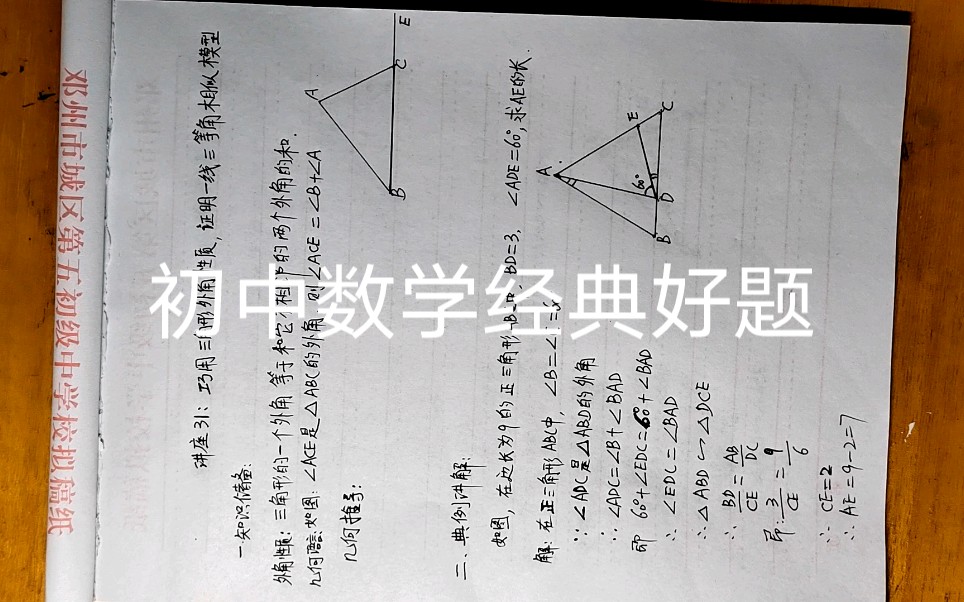 邓州市城区第五初级中学校拟稿纸
讲座31：巧用三角形外角性质，证明一线三等角相似模型
一、知识储备：
外角性质：三角形的一个外角等于和它不相邻的两个外角的和.
几何语言：如图：∠ACE是△ABC的外角，则∠ACE=∠B+∠A
几何推导：
A
B
C
E
二、典例讲解：
如图，在边长为9的正三角形ABC中，BD=3，∠ADE=60°，求AE的长.
A
B
D
C
E
60°
解：在正三角形ABC中，∠B=∠
∵∠ADC是△ABD的外角
∴∠ADC=∠B+∠BAD
即 60°+∠EDC=60°+∠BAD
∴∠EDC=∠BAD
∴△ABD∽△DCE
∴BD/CE=AB/DC
即：3/CE=9/6
∴CE=2
∴AE=9-2=7
初中数学经典好题